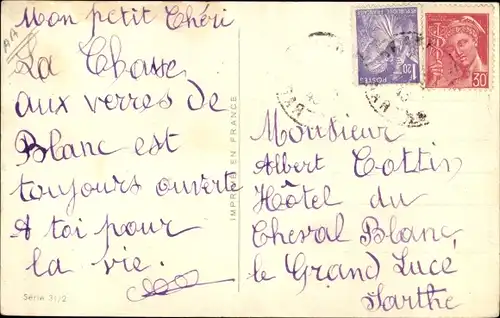 AA
Mon petit Chéri
La Chasse
aux verres de
Blanc est
toujours ouvert
A toi pour
la vie.
Série 31/2
IMPRIMÉ EN FRANCE
POSTES
1F20
30
Monsieur
Albert Cottin
Hôtel du
Cheval Blanc,
le Grand Lucé
Sarthe